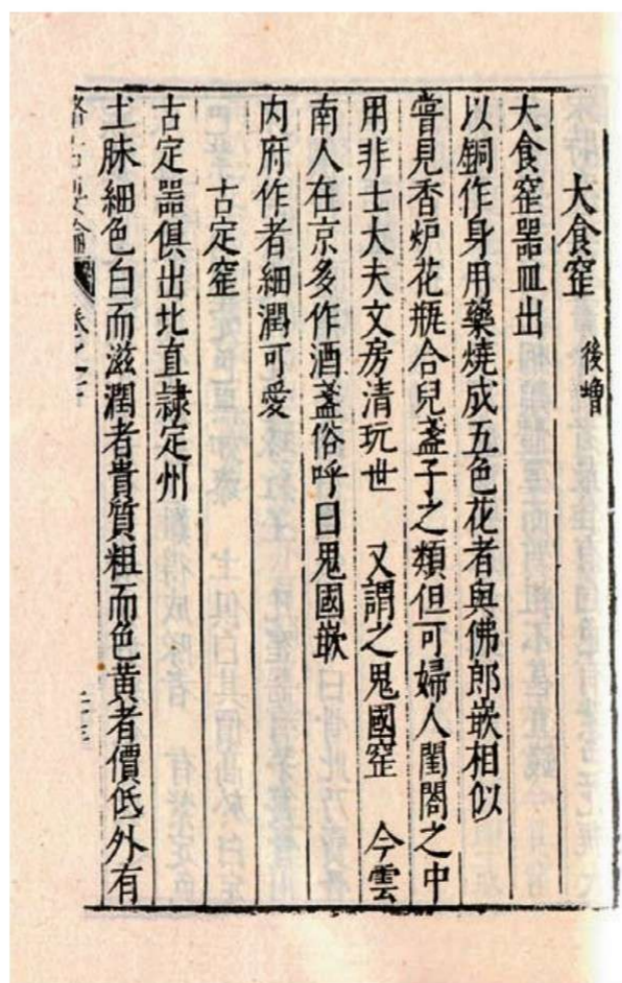 大食窑
後增
大食窑器皿出
以銅作身用藥燒成五色花者與佛郎嵌相似
嘗見香炉花瓶合兒盞子之類但可婦人閨閤之中
用非士大夫文房清玩世 又謂之鬼國窑 今雲
南人在京多作酒盞俗呼曰鬼國嵌
内府作者細潤可愛
古定窑
古定器俱出北直隷定州
土脉細色白而滋潤者貴質粗而色黄者價低外有